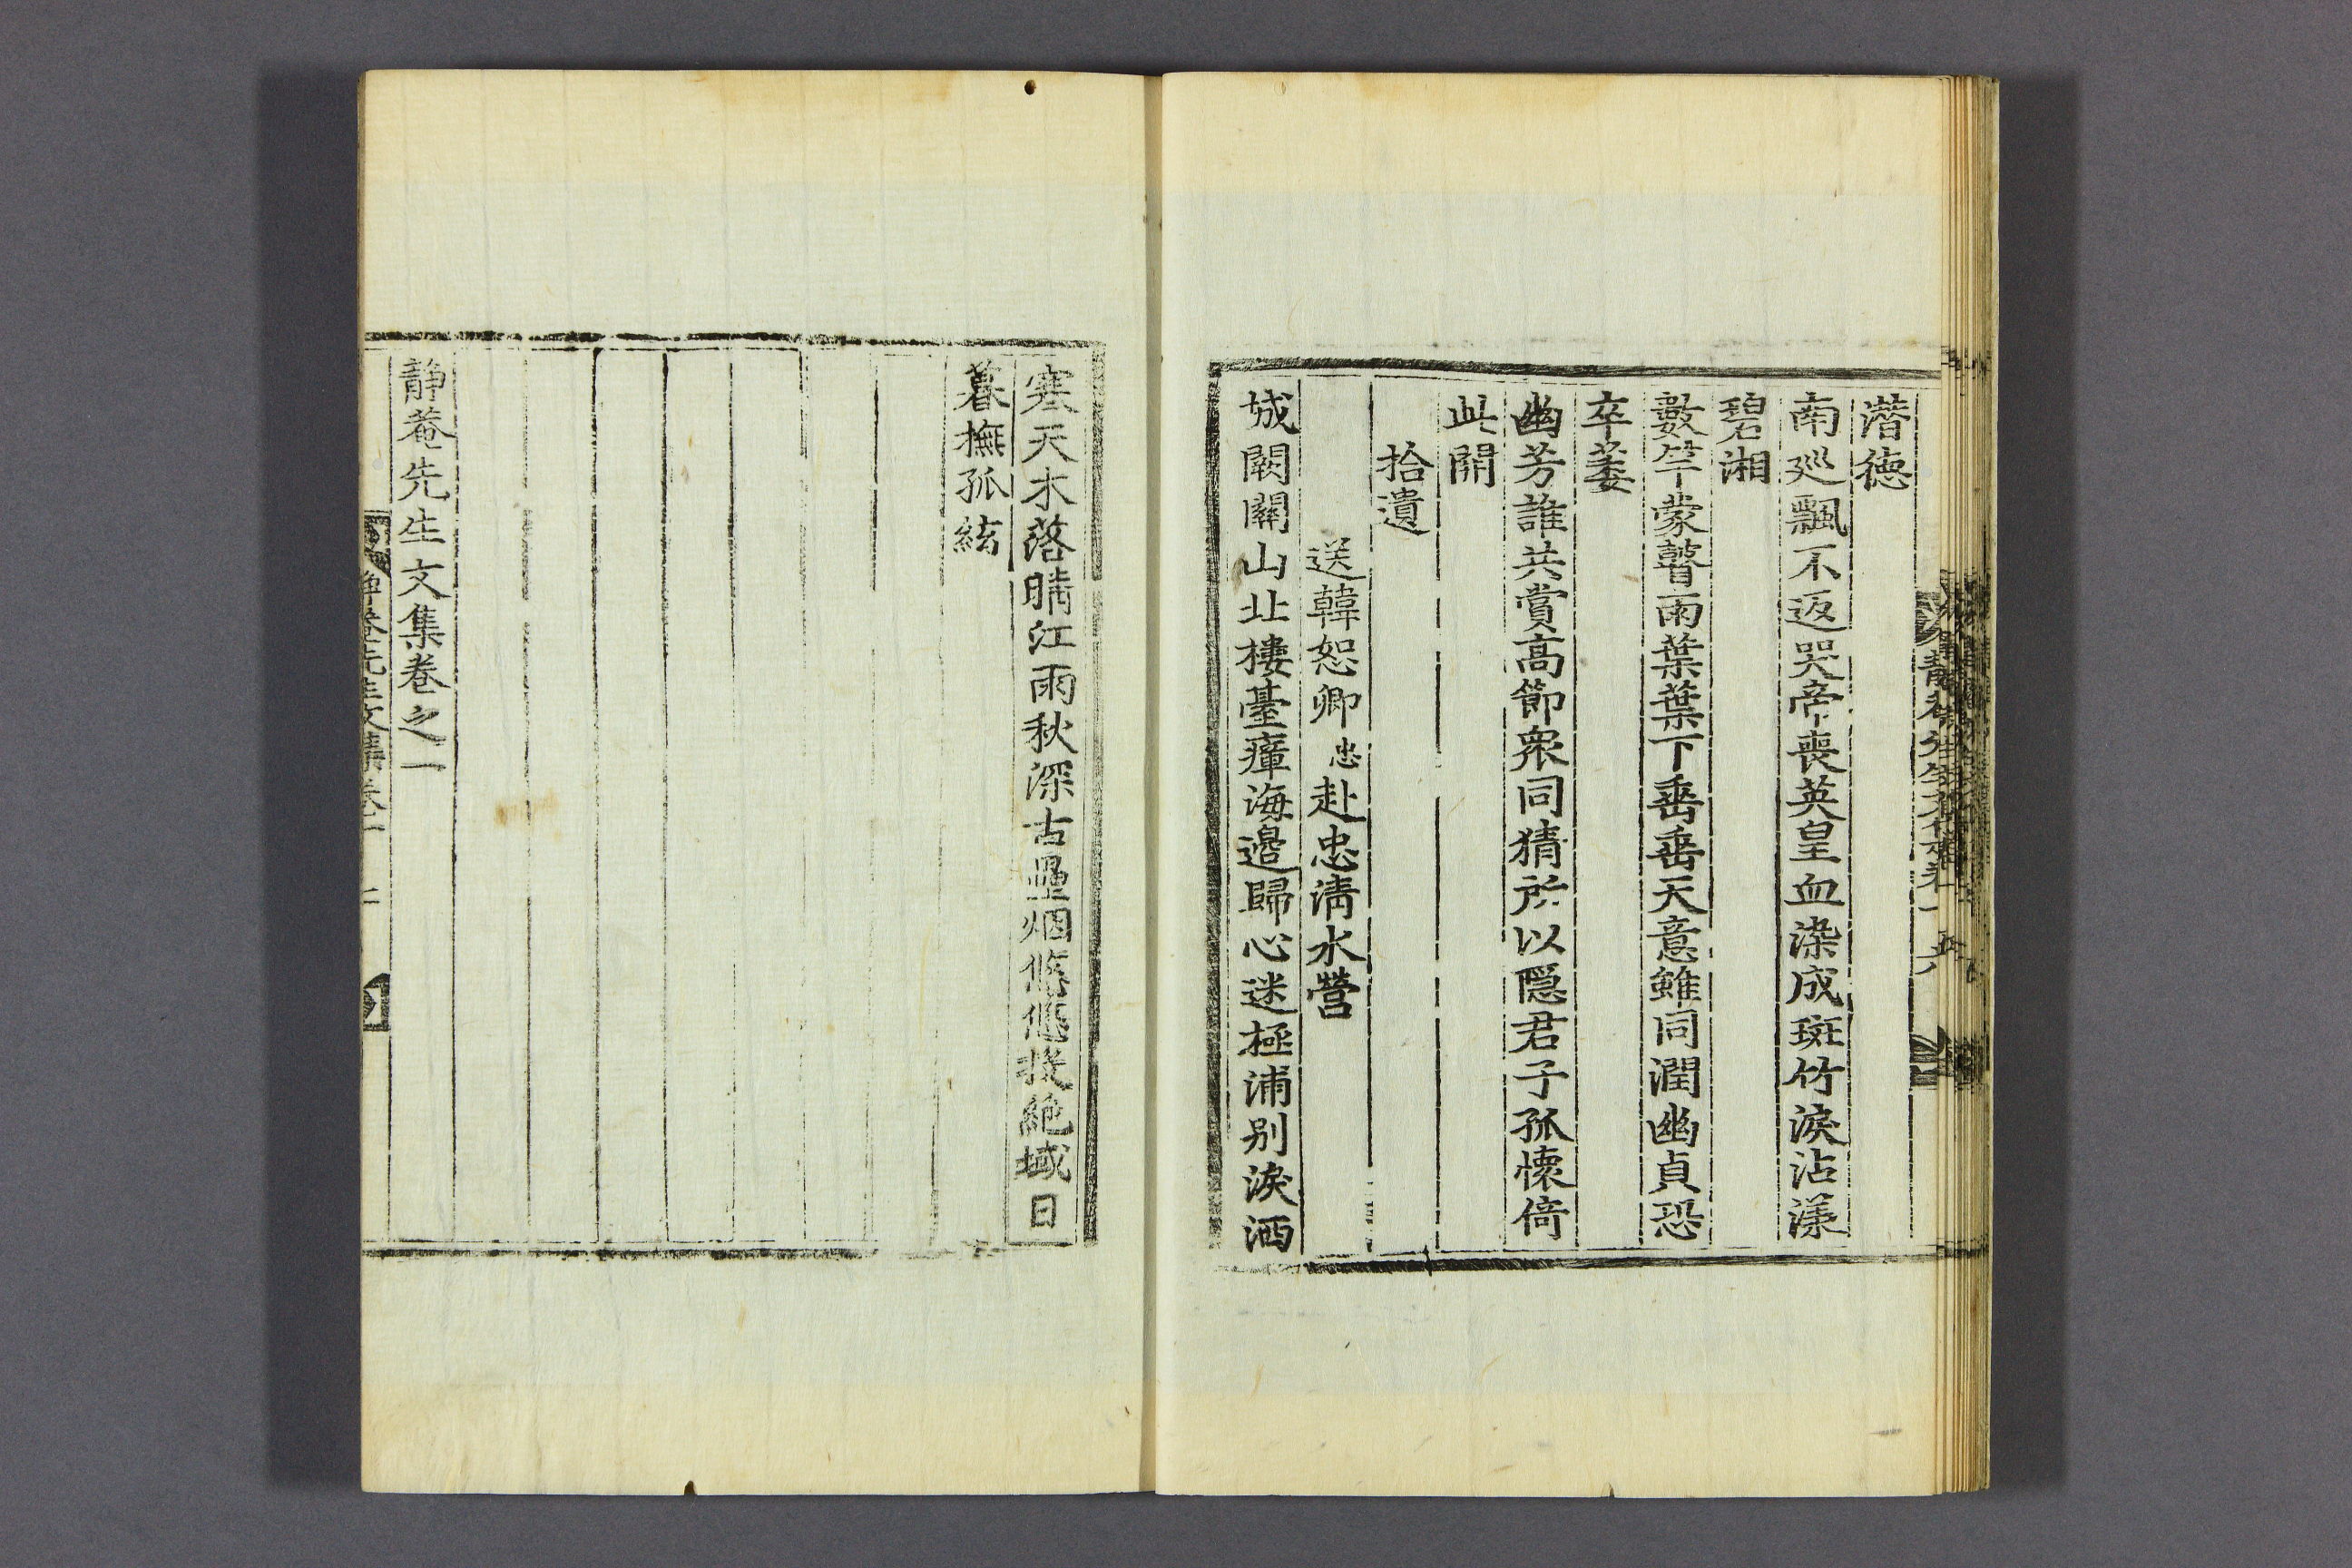 潛德
南巡飄不返哭帝喪英皇血染成斑竹淚沾漾
碧湘
數竿蒙瞽雨葉葉下垂垂天意雖同潤幽貞恐
卒萎
幽芳誰共賞高節衆同猜所以隠君子孤懷倚
此開
拾遺
送韓恕卿忠赴忠淸水營
城闕關山北樓臺瘴海邊歸心迷極浦別淚洒
寒天木落晴江雨秋深古壘烟悠悠投絶域日
暮撫孤絃
靜菴先生文集卷之一